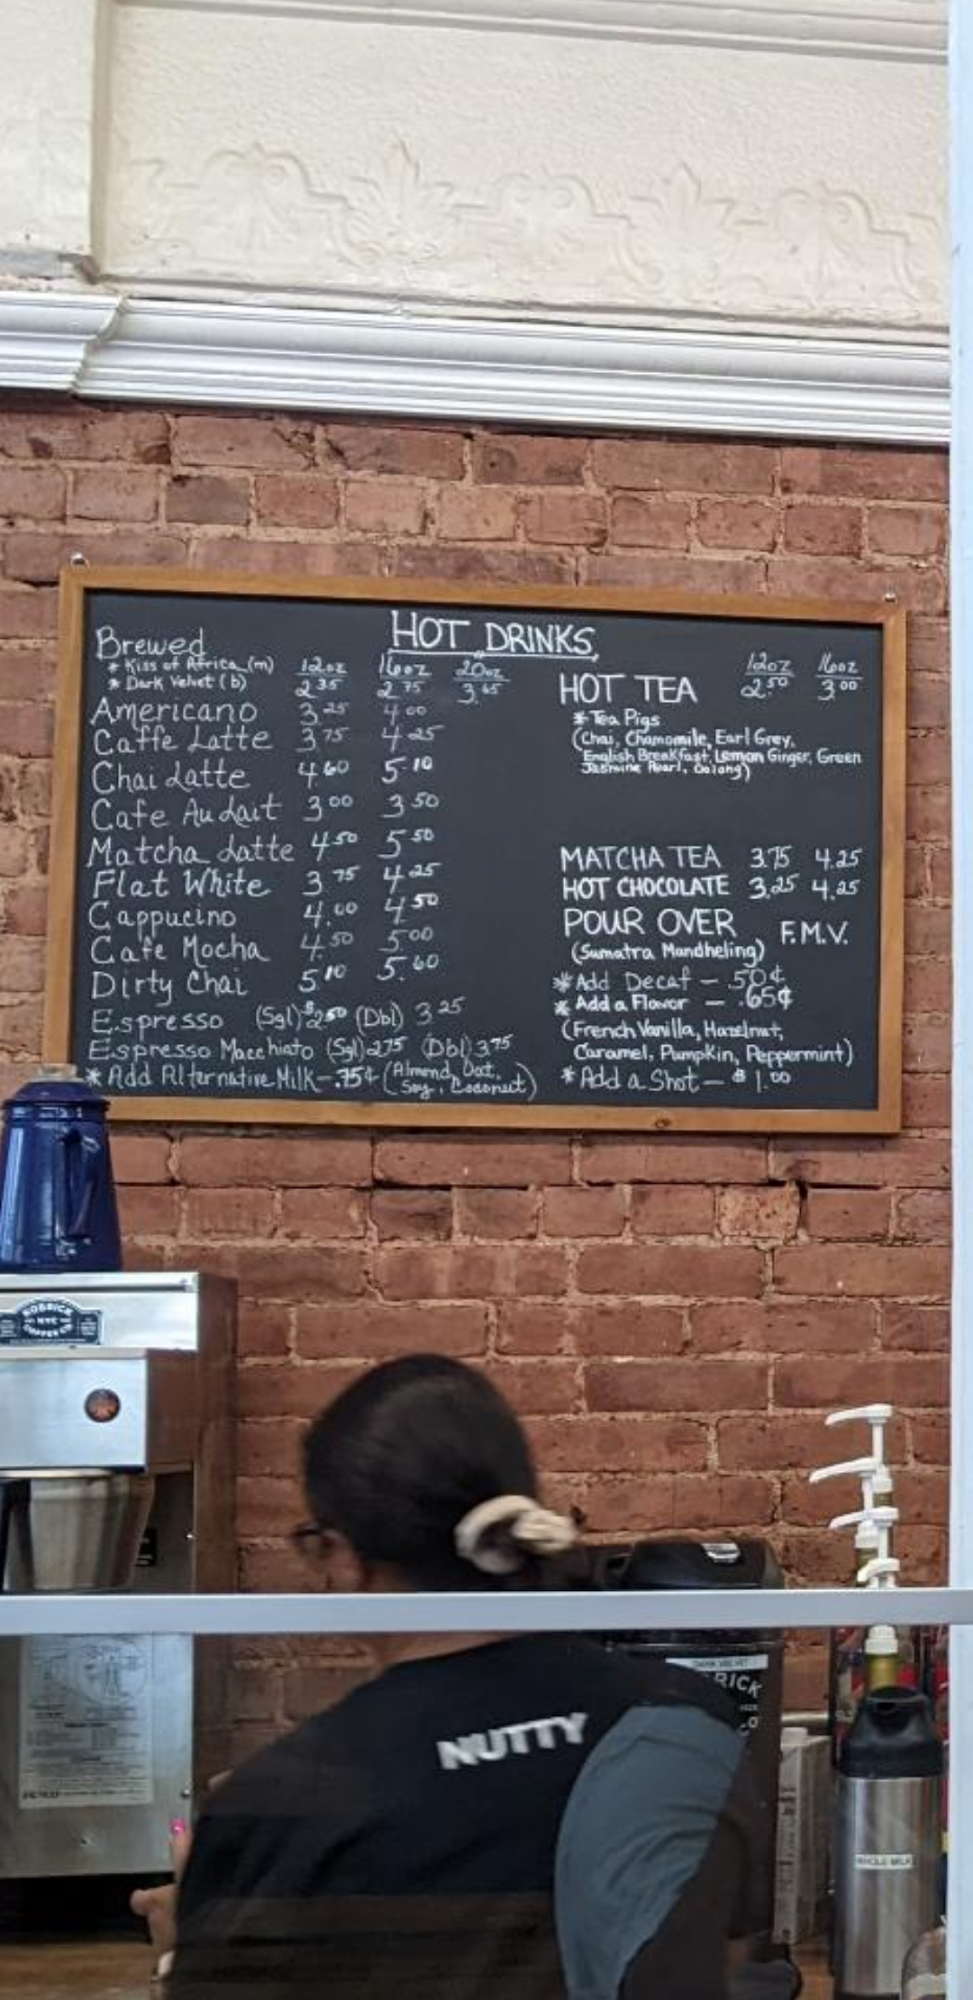 HOT DRINKS
Brewed
* Kiss of Africa (m) 12oz 16oz 20oz
* Dark Velvet (b) 2.35 2.75 3.65
Americano 3.25 4.00
Caffe Latte 3.75 4.25
Chai Latte 4.60 5.10
Cafe Au Lait 3.00 3.50
Matcha Latte 4.50 5.50
Flat White 3.75 4.25
Cappucino 4.00 4.50
Cafe Mocha 4.50 5.00
Dirty Chai 5.10 5.60
Espresso (Sgl) $2.50 (Dbl) 3.25
Espresso Macchiato (Sgl) 2.75 (Dbl) 3.75
* Add Alternative Milk - .75¢ (Almond, Oat,
Soy, Coconut)
12oz 16oz
HOT TEA 2.50 3.00
* Tea Pigs
(Chai, Chamomile, Earl Grey,
English Breakfast, Lemon Ginger, Green
Jasmine Pearl, Oolong)
MATCHA TEA 3.75 4.25
HOT CHOCOLATE 3.25 4.25
POUR OVER F.M.V.
(Sumatra Mandheling)
* Add Decaf - .50¢
* Add a Flavor - .65¢
(French Vanilla, Hazelnut,
Caramel, Pumpkin, Peppermint)
* Add a Shot - $1.00
NYC
COFFEE CO
NUTTY
DARK VELVET
RICK
WHOLE MILK